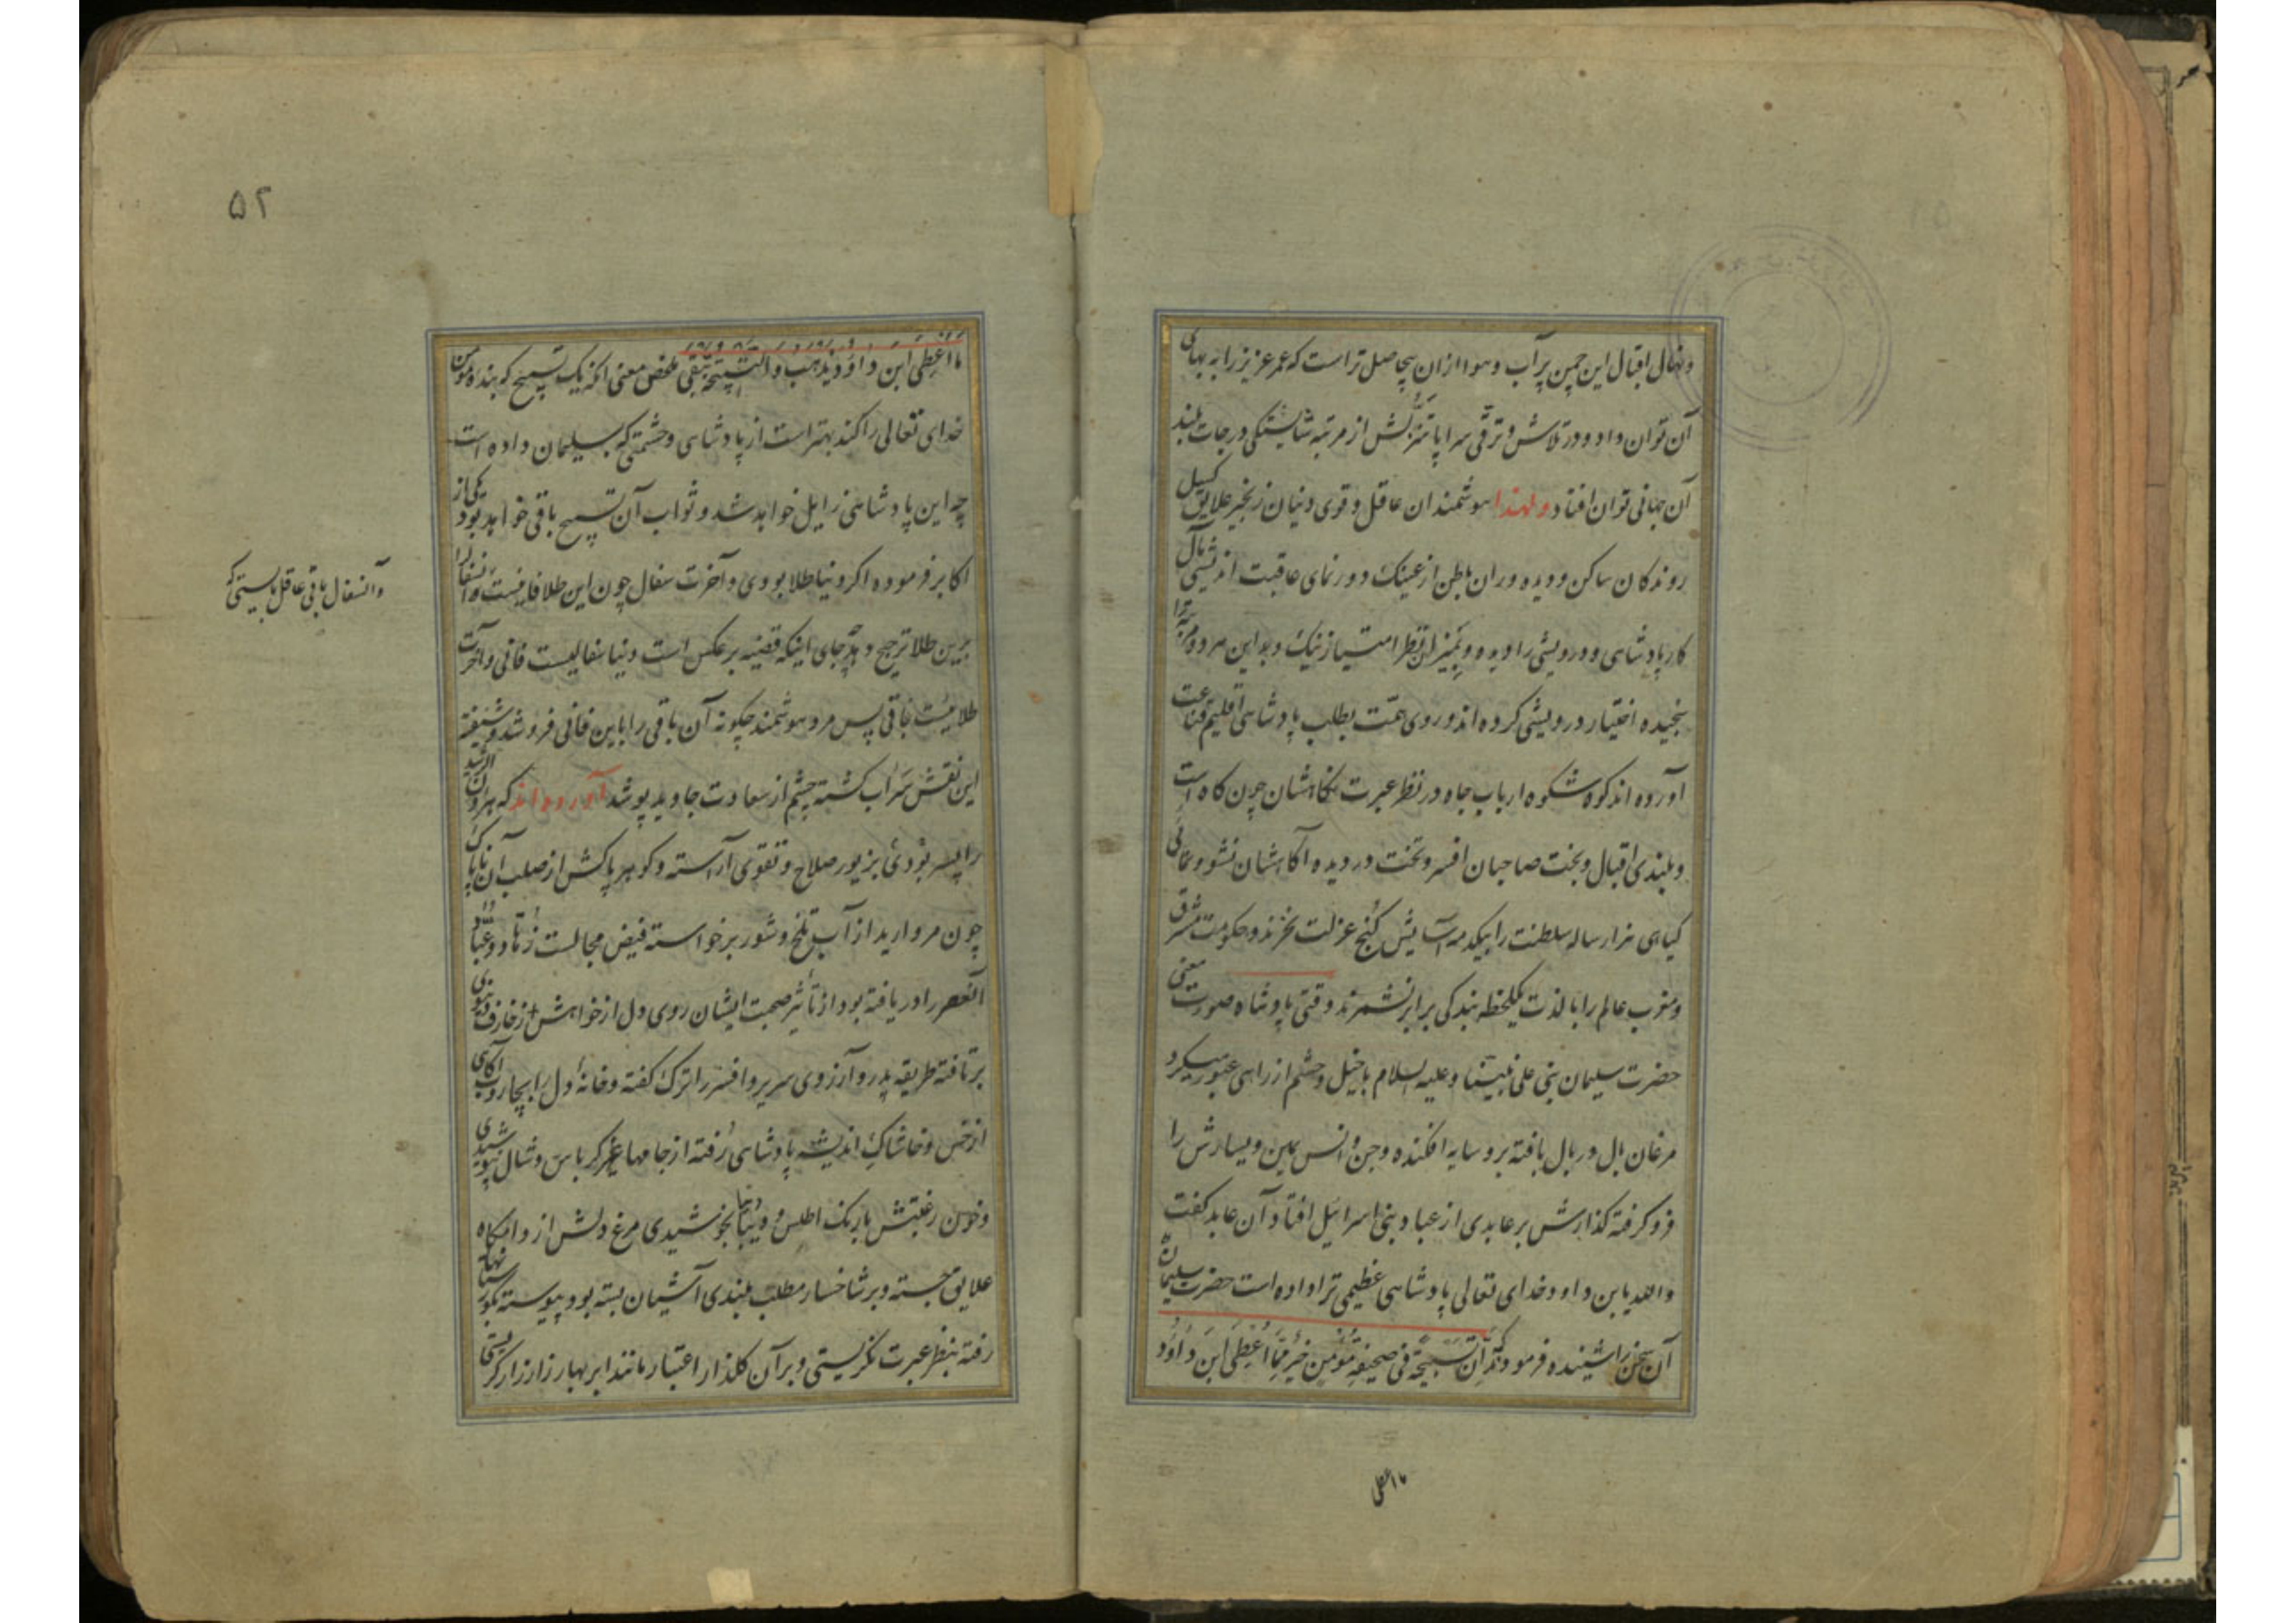 ونهال اقبال این چمن پر آب و هوا از ان بیحاصل تر است که عمر عزیز را به بهای
آن توان داد و در تلاش و ترقی سراپا تنزلش از مرتبه شایستگی درجات بلند
آن جهانی توان افتاد ولهذا هوشمندان عاقل و قوی دنیان زنجیر علایق کسیل
روندکان ساکن و دیده وران باطن از عینک دور نمای عاقبت اندیشی مآل
کار پادشاهی و درویشی را دیده و بمیزان نظر امتیاز نیک و بد این هر دو مرتبه را
سنجیده اختیار درویشی کرده اند و روی همت بطلب پادشاهی اقلیم قناعت
آورده اند کوه شکوه ارباب جاه در نظر عبرت نکاهشان چون کاه است
و بلندی اقبال و بخت صاحبان افسر و تخت در دیده آکاهشان نشو و نمای
کیاهی هزار ساله سلطنت را بیکدمه آسایش کنج عزلت نخرند و حکومت مشرق
ومغرب عالم را با لذت یکلحظه بندکی برابر نشمرند وقتی پادشاه صورت و معنی
حضرت سلیمان بنی علی نبینا و علیه السلام با خیل و حشم از راهی عبور میکرد
مرغان بال در بال بافته برو سایه افکنده و جن و انس یمین و یسارش را
فرو کرفته کذارش بر عابدی از عباد بنی اسرائیل افتاد آن عابد کفت
والله یا بن داود خدای تعالی پادشاهی عظیمی ترا داده است حضرت سلیمان
آن سخن را شنیده فرمودند که آن تسبیحة فی صحیفة مؤمن خیر مما اعطی ابن داود
ما اعطی
۵۲
ما اعطی ابن داود یذهب والتسبیحة تبقی ملخص معنی انکه یک تسبیح که بنده مومن
خدای تعالی را کند بهتر است از پادشاهی و حشمتی که بسلیمان داده است
چه این پادشاهی زایل خواهد شد و ثواب آن تسبیح باقی خواهد بود یکی از
اکابر فرموده اکر دنیا طلا بودی و آخرت سفال چون این طلا فانیست و آن سفال را
وآنسفال باقی عاقل بایستی که
برین طلا ترجیح دهد چه جای اینکه قضیه بر عکس است دنیا سفالیست فانی و آخرت
طلائیست باقی پس مرد هوشمند چکونه آن باقی را باین فانی فروشد و شیفته
این نقش سراب کشته چشم از سعادت جاوید پوشد آورده اند که هارون الرشید
را پسر بودی بزیور صلاح و تقوی آراسته و کوهر پاکش از صلب آن ناپاک
چون مروارید از آب تلخ و شور برخواسته فیض مجالست زهاد و عباد
آنعصر را دریافته بود از تأثیر صحبت ایشان روی دل از خواهش زخارف دنیوی
برتافته طریقه پدر و آرزوی سریر و افسر را ترک کفته و خانهٔ دل را بجاروب آکاهی
از خس و خاشاک اندیشه پادشاهی رفته از جامها غیر کرباس و شال نپوشیدی
و خون رغبتش با رنک اطلس و دیبا نجوشیدی مرغ دلش از دامکاه
علایق جسته و بر شاخسار مطلب بلندی آشیان بسته بود پیوسته بکورستانها
رفته بنظر عبرت نکریستی و بر آن کلذار اعتبار مانند ابر بهار زار زار کریستی